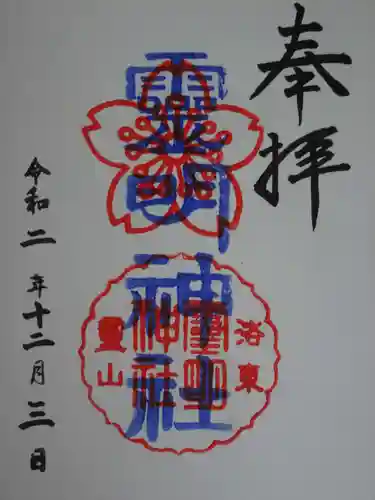 奉拝
靈明神社
洛東
靈明神社
靈山
令和二年十二月三日